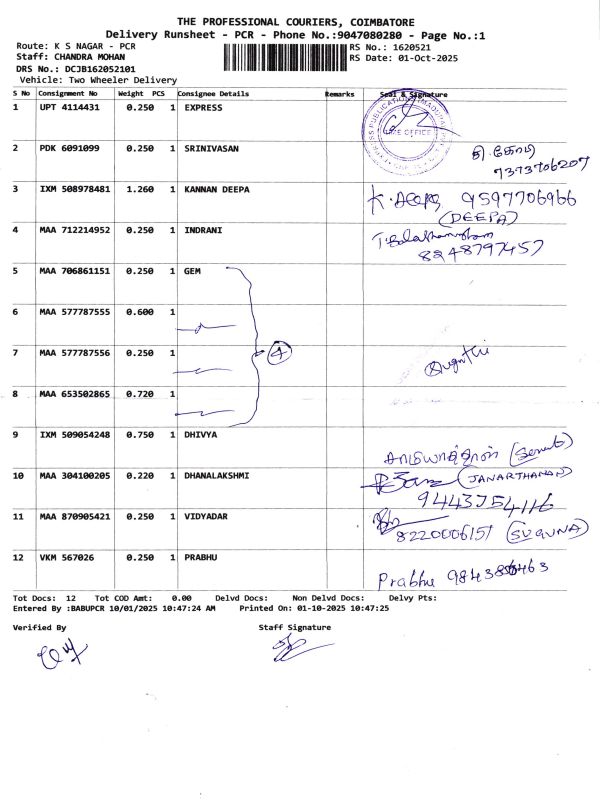 THE PROFESSIONAL COURIERS, COIMBATORE
Delivery Runsheet - PCR - Phone No.:9047080280 - Page No.:1
Route: K S NAGAR - PCR RS No.: 1620521
Staff: CHANDRA MOHAN RS Date: 01-Oct-2025
DRS No.: DCJB162052101
Vehicle: Two Wheeler Delivery
S No Consignment No Weight PCS Consignee Details Remarks Seal & Signature
1 UPT 4114431 0.250 1 EXPRESS
2 PDK 6091099 0.250 1 SRINIVASAN
7373706207
3 IXM 508978481 1.260 1 KANNAN DEEPA K. Deepa 9597706966
(DEEPA)
4 MAA 712214952 0.250 1 INDRANI
8248797457
5 MAA 706861151 0.250 1 GEM
6 MAA 577787555 0.600 1
7 MAA 577787556 0.250 1 4
8 MAA 653502865 0.720 1
9 IXM 509054248 0.750 1 DHIVYA
10 MAA 304100205 0.220 1 DHANALAKSHMI (JANARTHANAN)
9443754116
11 MAA 870905421 0.250 1 VIDYADAR
8220006151 (SUGUNA)
12 VKM 567026 0.250 1 PRABHU
Prabhu
Tot Docs: 12 Tot COD Amt: 0.00 Delvd Docs: Non Delvd Docs: Delvy Pts:
Entered By :BABUPCR 10/01/2025 10:47:24 AM Printed On: 01-10-2025 10:47:25
Verified By Staff Signature